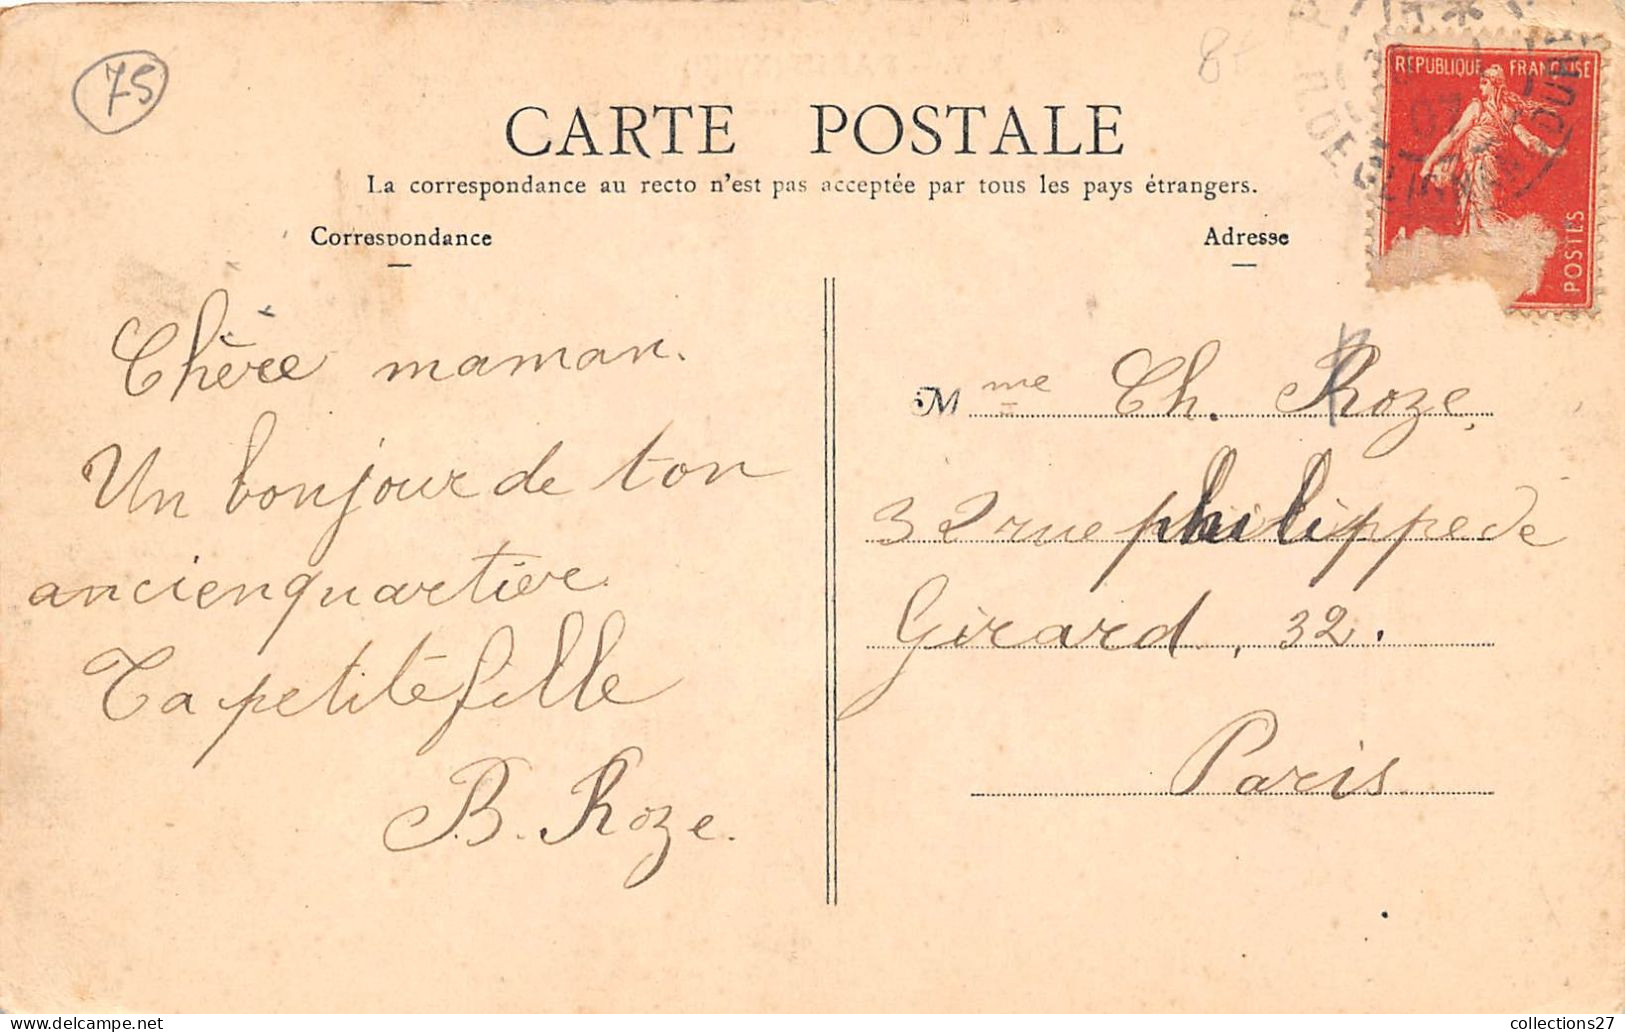 75
8f
REPUBLIQUE FRANÇAISE
POSTES
07
CARTE POSTALE
La correspondance au recto n'est pas acceptée par tous les pays étrangers.
Correspondance
Adresse
Chère maman.
Un bonjour de ton
ancien quartier
Ta petite fille
B. Roze.
Mme Ch. Roze
32 rue philippe de
Girard, 32.
Paris
collections27